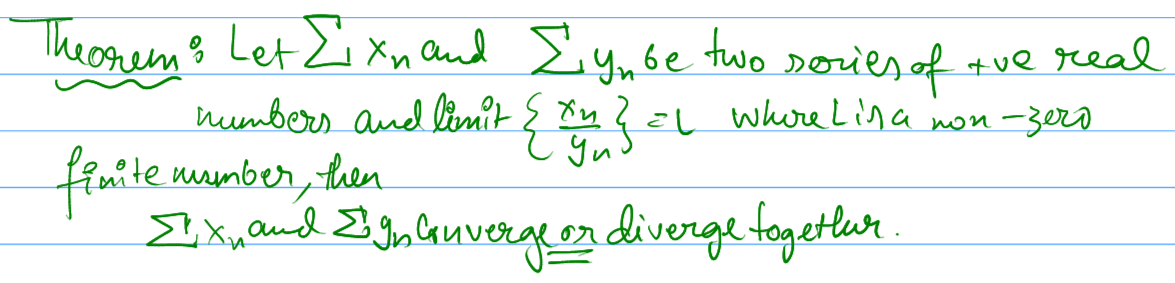 Theorem: Let ∑ xn and ∑ yn be two series of +ve real
numbers and limit { xn/yn } = L where L is a non-zero
finite number, then
∑ xn and ∑ yn Converge or diverge together.